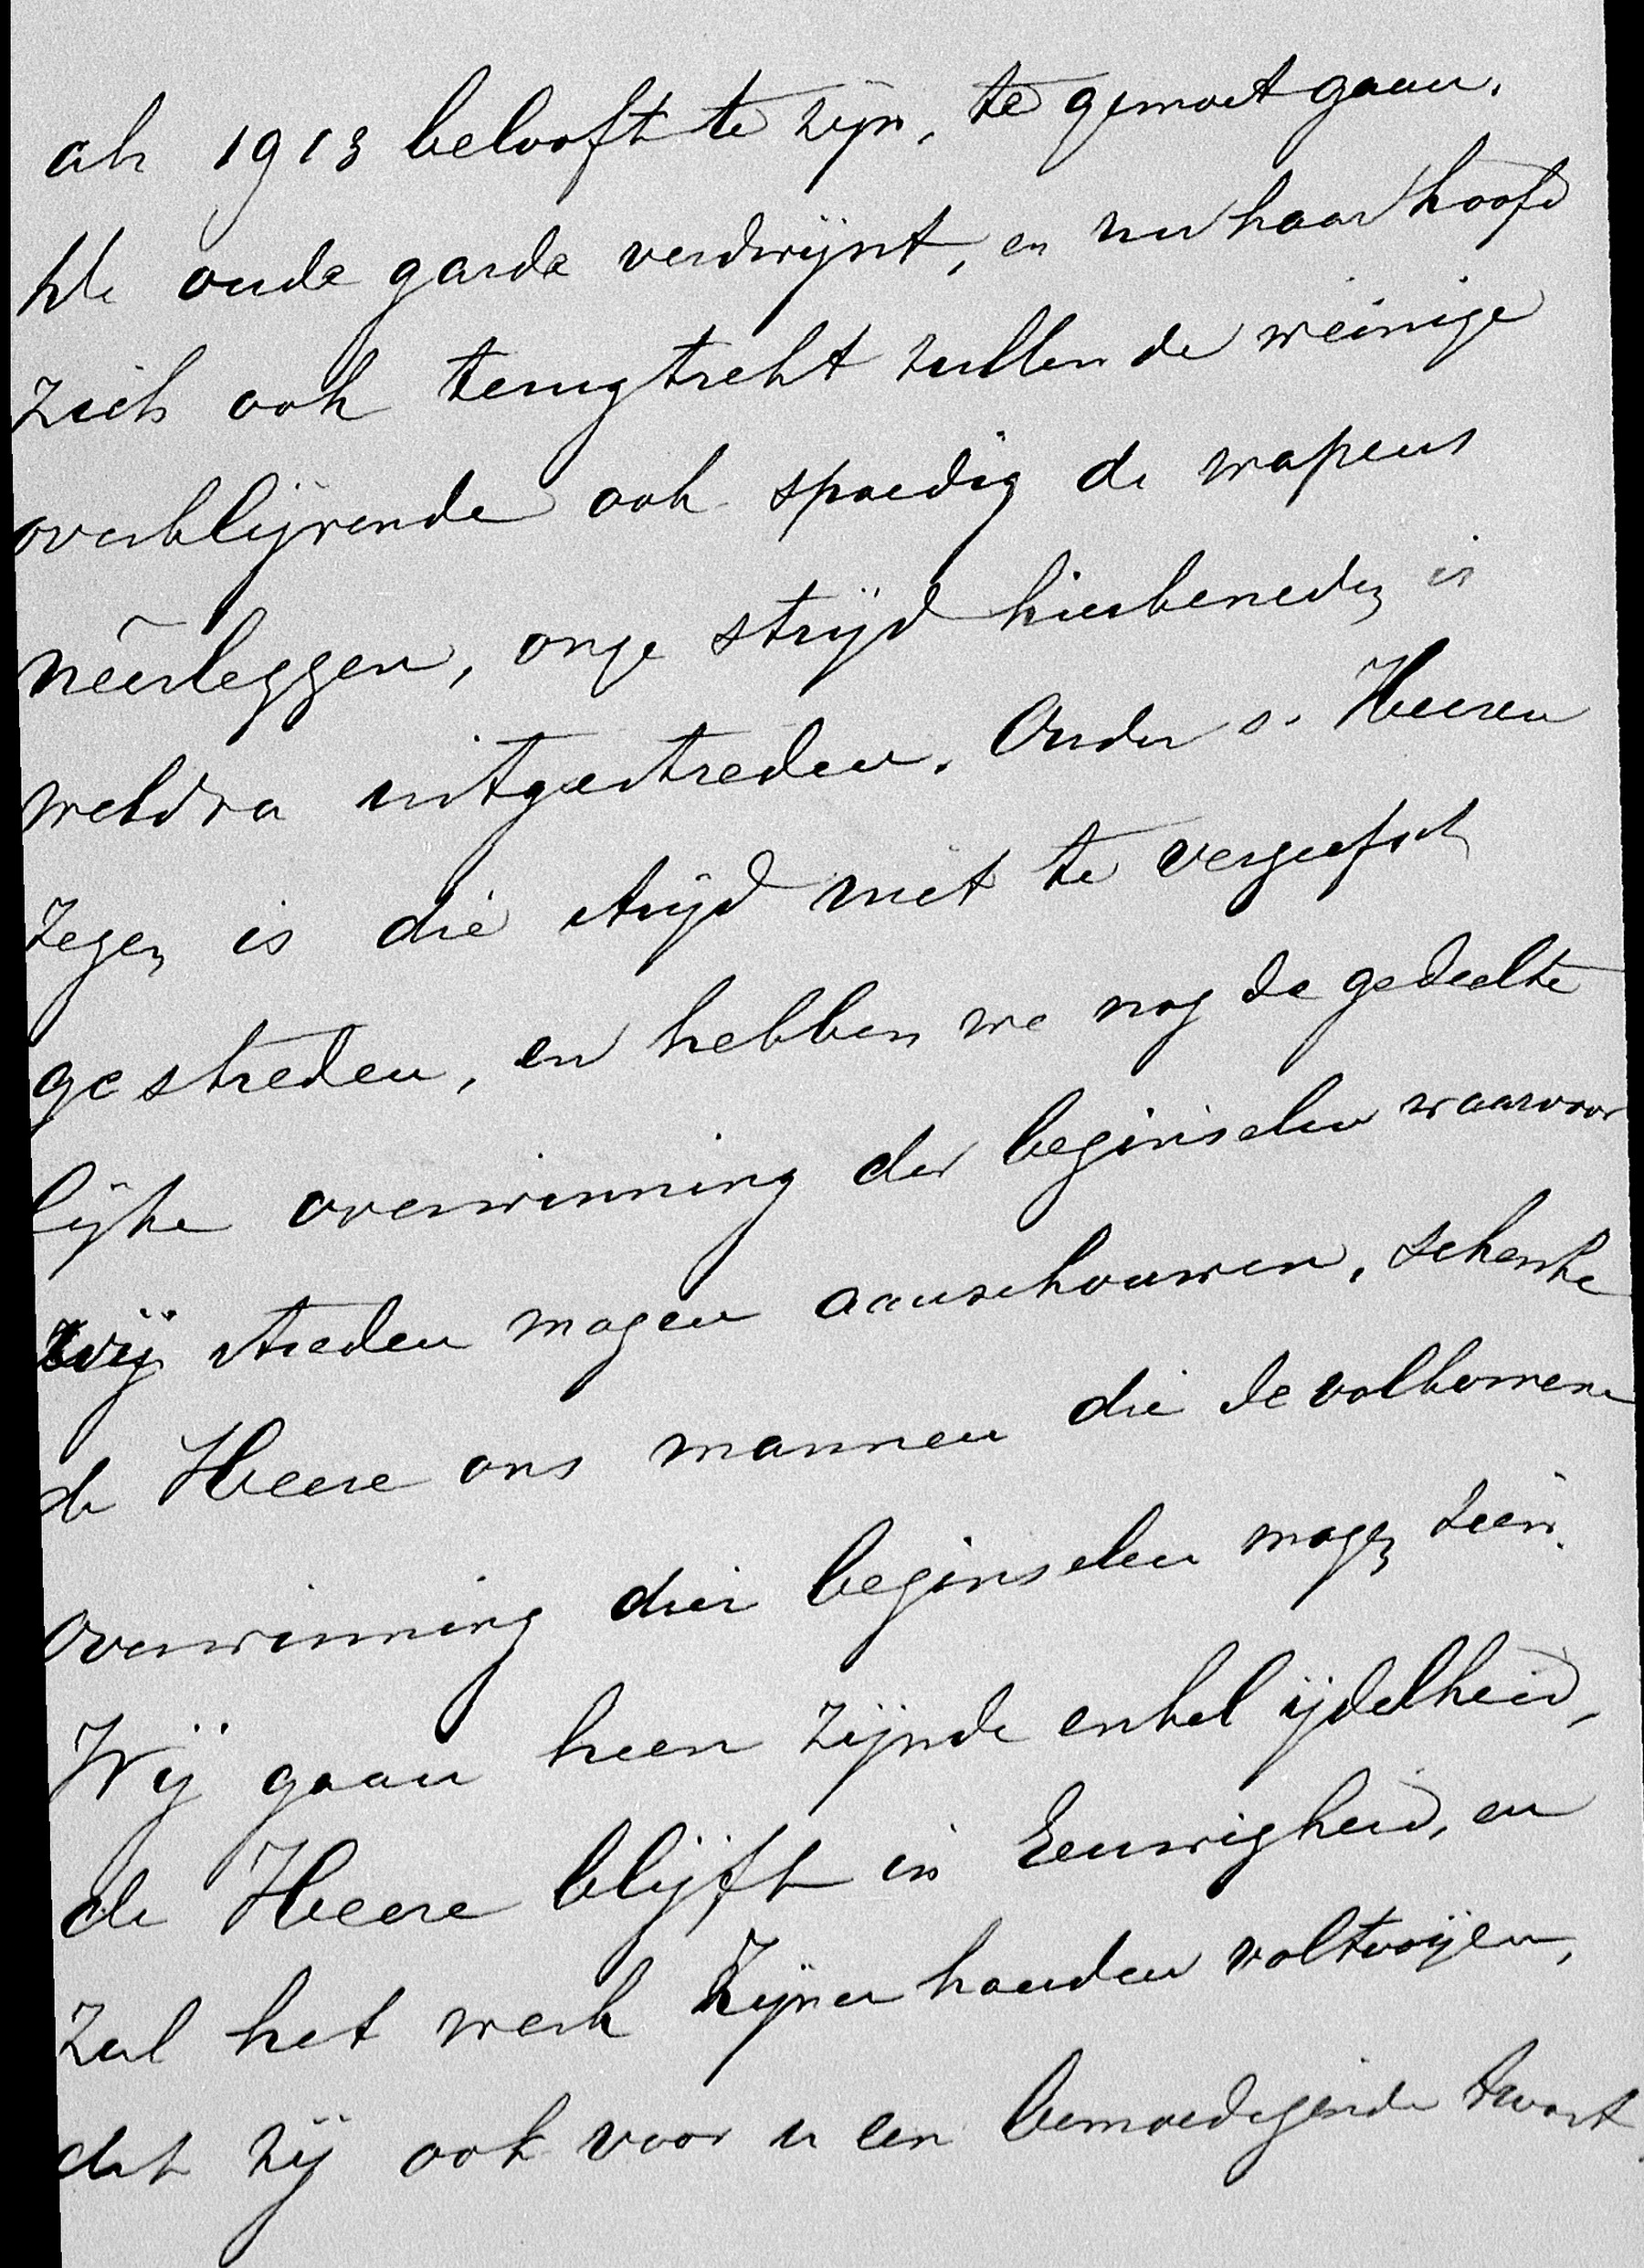 als 1913 belooft te zijn, te gemoet gaan.
De oude garde verdwijnt, en nu haar hoofd
zich ook terugtrekt zullen de weinige
overblijvende ook spoedig de wapens
neêrleggen, onze strijd hierbeneden is
weldra uitgestreden. Onder s. Heeren
zegen is die strijd niet te vergeefsch
gestreden, en hebben we nog de gedeelte
lijke overwinning der beginselen waarvoor
wij streden mogen aanschouwen, schenke
de Heere ons mannen die de volkomene
overwinning dier beginselen mogen zien.
Wij gaan heen zijnde enkel ijdelheid,
de Heere blijft in Eeuwigheid, en
zal het werk Zijner handen voltooijen,
dat zij ook voor u een bemoedigende